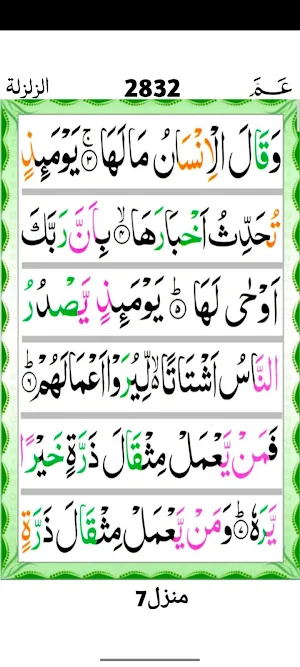 الزلزلة 2832 عَمَّ
وَقَالَ الْاِنْسَانُ مَا لَهَا ۚ﴿۳﴾ يَوْمَئِذٍ
تُحَدِّثُ اَخْبَارَهَا ۙ﴿۴﴾ بِاَنَّ رَبَّكَ
اَوْحٰى لَهَا ؕ﴿۵﴾ يَوْمَئِذٍ يَّصْدُرُ
النَّاسُ اَشْتَاتًا ۙ لِّيُرَوْا اَعْمَالَهُمْ ؕ﴿۶﴾
فَمَنْ يَّعْمَلْ مِثْقَالَ ذَرَّةٍ خَيْرًا
يَّرَهٗ ؕ﴿۷﴾ وَمَنْ يَّعْمَلْ مِثْقَالَ ذَرَّةٍ
منزل7